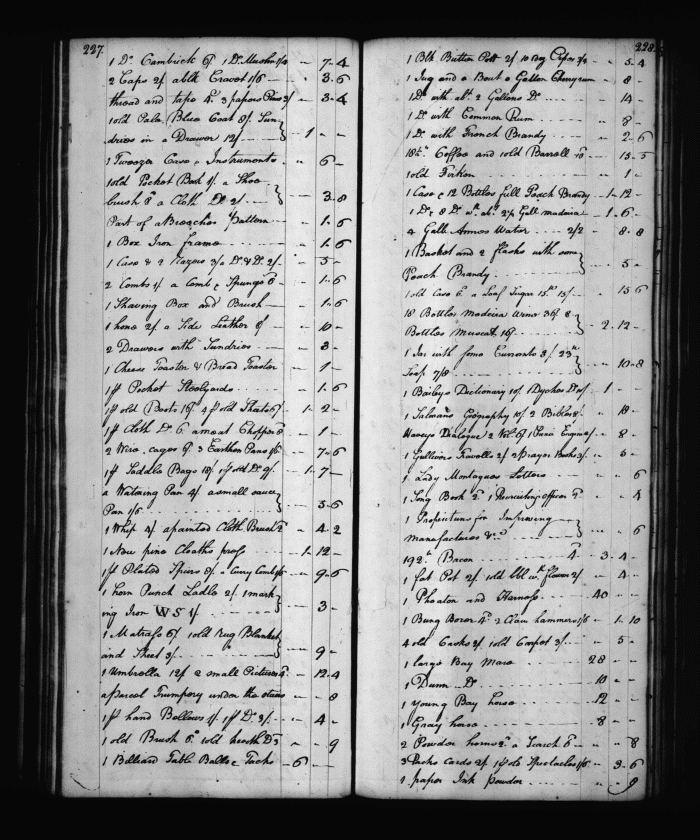 227
1 Do Cambrick 6/ 1 Do Muslin 1/4 " 7 " 4
2 Caps 2/ a blk Cravat 1/6 " 3 " 6
thread and tape 4d 3 papers Pins 3/ " 3 " 4
1 old Pale Blue Coat 8/ Sun
dries in a Drawer 12/ 1 " "
1 Tweezer Case & Instruments " 6 "
1 old Pocket Book 1/ a Shoe
brush 8d a Cloth Do 2/ 3 " 8
Part of a Breeches Pattern 1 " 6
1 Box Iron frame " 1 " 6
1 Case & 2 Razors 3/ a Do & Do 2/ 5 "
2 Combs 1/ a Comb & Spunge 6d 1 " 6
1 Shaving Box and Brush 1 " 6
1 hone 2/ a Side Leather 8/ 10 "
2 Drawers with Sundries 3 "
1 Cheese Toaster & Bread Toaster 1 "
1 pr Pocket Steelyards 1 " 6
1 pr old Boots 16/ 4 pr old Shoes 6/ 1 " 2 "
1 pr Cloth Do 6d a meat Chopper 6d 1 "
2 Wire cages 6/ 3 Earthen Pans 1/6 7 " 6
1 pr Saddle Bags 18/ 1 pr old Do 9/ 1 " 7 "
a Watering Pan 4/ a small sauce
Pan 1/6 5 " 6
1 Whip 4/ a painted Cloth Brush 2d 4 " 2
1 New pine Cloaths press 1 " 12 "
1 pr Plated Spurs 8/ a Curry Comb 1/6 " 9 " 6
1 horn Punch Ladle 2/ 1 mark
ing Iron WS 1/ 3 "
1 Matrass 6/ 1 old Rug Blanket
and Sheet 3/ 9 "
1 Umbrella 12/ 2 small Pictures 4d 12 " 4
a parcel Trumpery under the stairs " 8
1 pr hand Bellows 1/ 1 pr Do 3/ 4 "
1 old Brush 6d 1 old hearth Do 3 " 9
1 Billiard Table Balls & Tacks 6 " "
228
1 Blk Butter Pott 2/ 10 Dog 3/4 " 5 " 4
1 Jug and a Bout a Gallon Cherry rum 8 "
1 Do with abt 2 Gallons Do 14 "
1 Do with Common Rum 8 "
1 Do with French Brandy 2 " 6
18 lb Coffee and 1 old Barrell 15 " 5
1 old Firkin 1 "
1 Case & 12 Bottles full Peach Brandy 1 " 12 "
1 Do & 8 Do wth abt 2 1/2 Galls madeira 1 " 6 "
4 Galls Annos Water 2/2 8 " 8
1 Basket and 2 flasks with some
Peach Brandy 5 "
1 old Case 6d a Loaf Sugar 15 lb 15/ " 15 6
18 Bottles Madeira 36/ 8
Bottles Muscat 16/ 2 " 12 "
1 Jar with some Currants 3/ 23 lb
Soap 7/8 10 " 8
1 Baileys Dictionary 10/ 1 Dyches Do 1 "
1 Salmans Geography 10/ 2 Bibles 8/ " 18 "
Harveys Dialogue 2 Vols 6/ " 8 "
1 Gullivers Travells 2/ 2 Prayer Books 3/ " 5 "
1 Lady Montagues Letters " " 6
1 Song Book 2d 1 Recruiting officer 2d " 4
1 for Improving
Manufactures &c " 6
192 lb Bacon 4d 3 " 4 "
1 fat Pot 2/ 1 old bbl wth flower 2/ " 4 "
1 Phaeton and Harness 40 " "
1 Bung Borer 4d 2 Claw hammers 1/6 1 " 10
4 old Casks 2/ 1 old Carpet 3/ " 5 "
1 large Bay Mare 28 " "
1 Dunn Do 10 " "
1 young Bay horse 12 " "
1 Gray horse 8 " "
2 Powder horns 2d a Search 6d " " 8
3 Packs Cards 2/ 1 pr old Spectacles 1/6 3 " 6
1 paper Ink powder " 9